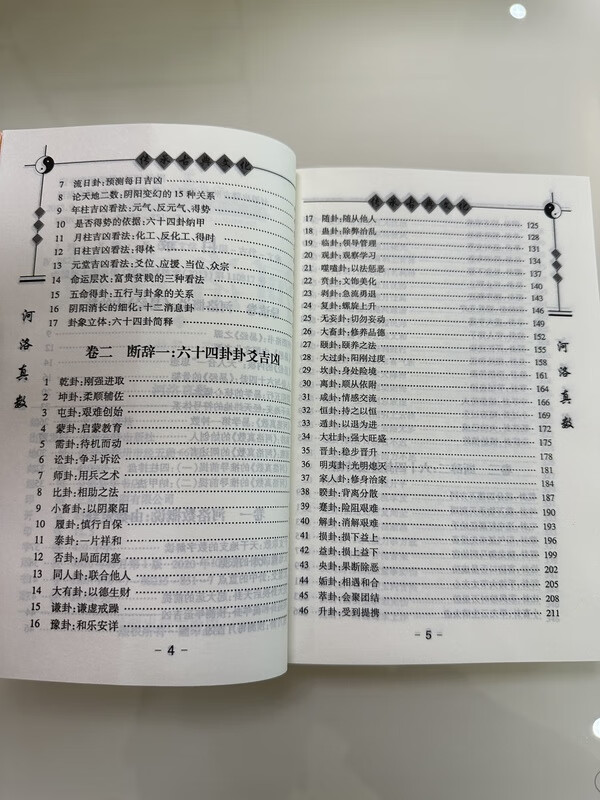 7 流日卦:预测每日吉凶
8 论天地二数:阴阳变幻的15种关系
9 年柱吉凶看法:元气、反元气、得势
10 是否得势的依据:六十四卦纳甲
11 月柱吉凶看法:化工、反化工、得时
12 日柱吉凶看法:得体
13 元堂吉凶看法:爻位、应援、当位、众宗
14 命运层次:富贵贫贱的三种看法
15 五命得卦:五行与卦象的关系
16 阴阳消长的细化:十二消息卦
17 卦象立体:六十四卦简释
卷二 断辞一:六十四卦卦爻吉凶
1 乾卦:刚强进取
2 坤卦:柔顺辅佐
3 屯卦:艰难创始
4 蒙卦:启蒙教育
5 需卦:待机而动
6 讼卦:争斗诉讼
7 师卦:用兵之术
8 比卦:相助之法
9 小畜卦:以阴蒙阳
10 履卦:慎行自保
11 泰卦:一片祥和
12 否卦:局面闭塞
13 同人卦:联合他人
14 大有卦:以德生财
15 谦卦:谦虚戒躁
16 豫卦:和乐安详
- 4 -
河洛真数
17 随卦:随从他人 125
18 蛊卦:除弊治乱 128
19 临卦:领导管理 131
20 观卦:观察学习 134
21 噬嗑卦:以法惩恶 137
22 贲卦:文饰美化 140
23 剥卦:急流勇退 143
24 复卦:螺旋上升 146
25 无妄卦:切勿妄动 149
26 大畜卦:修养品德 152
27 颐卦:颐养之法 155
28 大过卦:阳刚过度 158
29 坎卦:身处险境 160
30 离卦:顺从依附 163
31 咸卦:情感交流 166
32 恒卦:持之以恒 169
33 遁卦:以退为进 172
34 大壮卦:强大旺盛 175
35 晋卦:稳步晋升 178
36 明夷卦:光明熄灭 181
37 家人卦:修身治家 184
38 睽卦:背离分散 187
39 蹇卦:险阻艰难 190
40 解卦:消解艰难 193
41 损卦:损下益上 196
42 益卦:损上益下 199
43 夬卦:果断除恶 202
44 姤卦:相遇和合 205
45 萃卦:会聚团结 208
46 升卦:受到提携 211
- 5 -
河洛真数